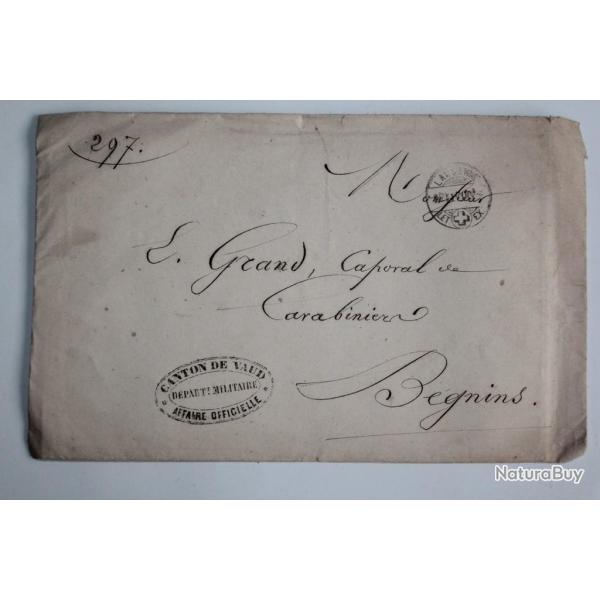 297.
Monsieur
L. Grand, Caporal de
Carabiniers
Begnins.
CANTON DE VAUD
DÉPARTT. MILITAIRE
AFFAIRE OFFICIELLE
LAUSANNE
EX
NaturaBuy